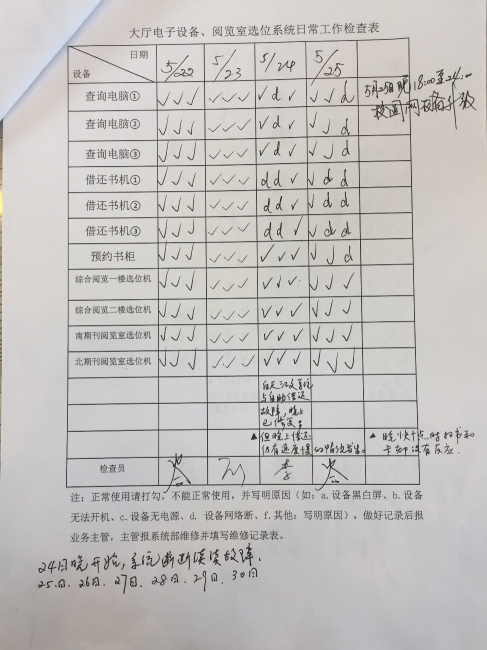 大厅电子设备、阅览室选位系统日常工作检查表
日期
设备
5/22 5/23 5/24 5/25
5月25日晚18:00至24:00
校园网设备升级
查询电脑① ✓✓✓ ✓✓✓ ✓d✓ ✓✓d
查询电脑② ✓✓✓ ✓✓✓ ✓d✓ ✓✓d
查询电脑③ ✓✓✓ ✓✓✓ ✓d✓ ✓✓d
借还书机① ✓✓✓ ✓✓✓ dd✓ ✓dd
借还书机② ✓✓✓ ✓✓✓ dd✓ ✓dd
借还书机③ ✓✓✓ ✓✓✓ dd✓ ✓dd
预约书柜 ✓✓✓ ✓✓✓ ✓✓✓ ✓✓d
综合阅览一楼选位机 ✓✓✓ ✓✓✓ ✓✓✓ ✓✓✓
综合阅览二楼选位机 ✓✓✓ ✓✓✓ ✓✓✓ ✓✓✓
南期刊阅览室选位机 ✓✓✓ ✓✓✓ ✓✓✓ ✓✓✓
北期刊阅览室选位机 ✓✓✓ ✓✓✓ ✓✓✓ ✓✓✓
白天汇文系统
与自助借还
故障,晚上
已修复。
▲但晚上借还
仍有速度慢的情况发生。
▲晚快十点时扫书和
卡都没有反应.
检查员 李
注:正常使用请打勾,不能正常使用,并写明原因(如:a.设备黑白屏、b.设备
无法开机、c.设备无电源、d.设备网络断、f.其他:写明原因),做好记录后报
业务主管,主管报系统部维修并填写维修记录表。
24日晚开始,系统断断续续故障.
25日、26日、27日、28日、29日、30日